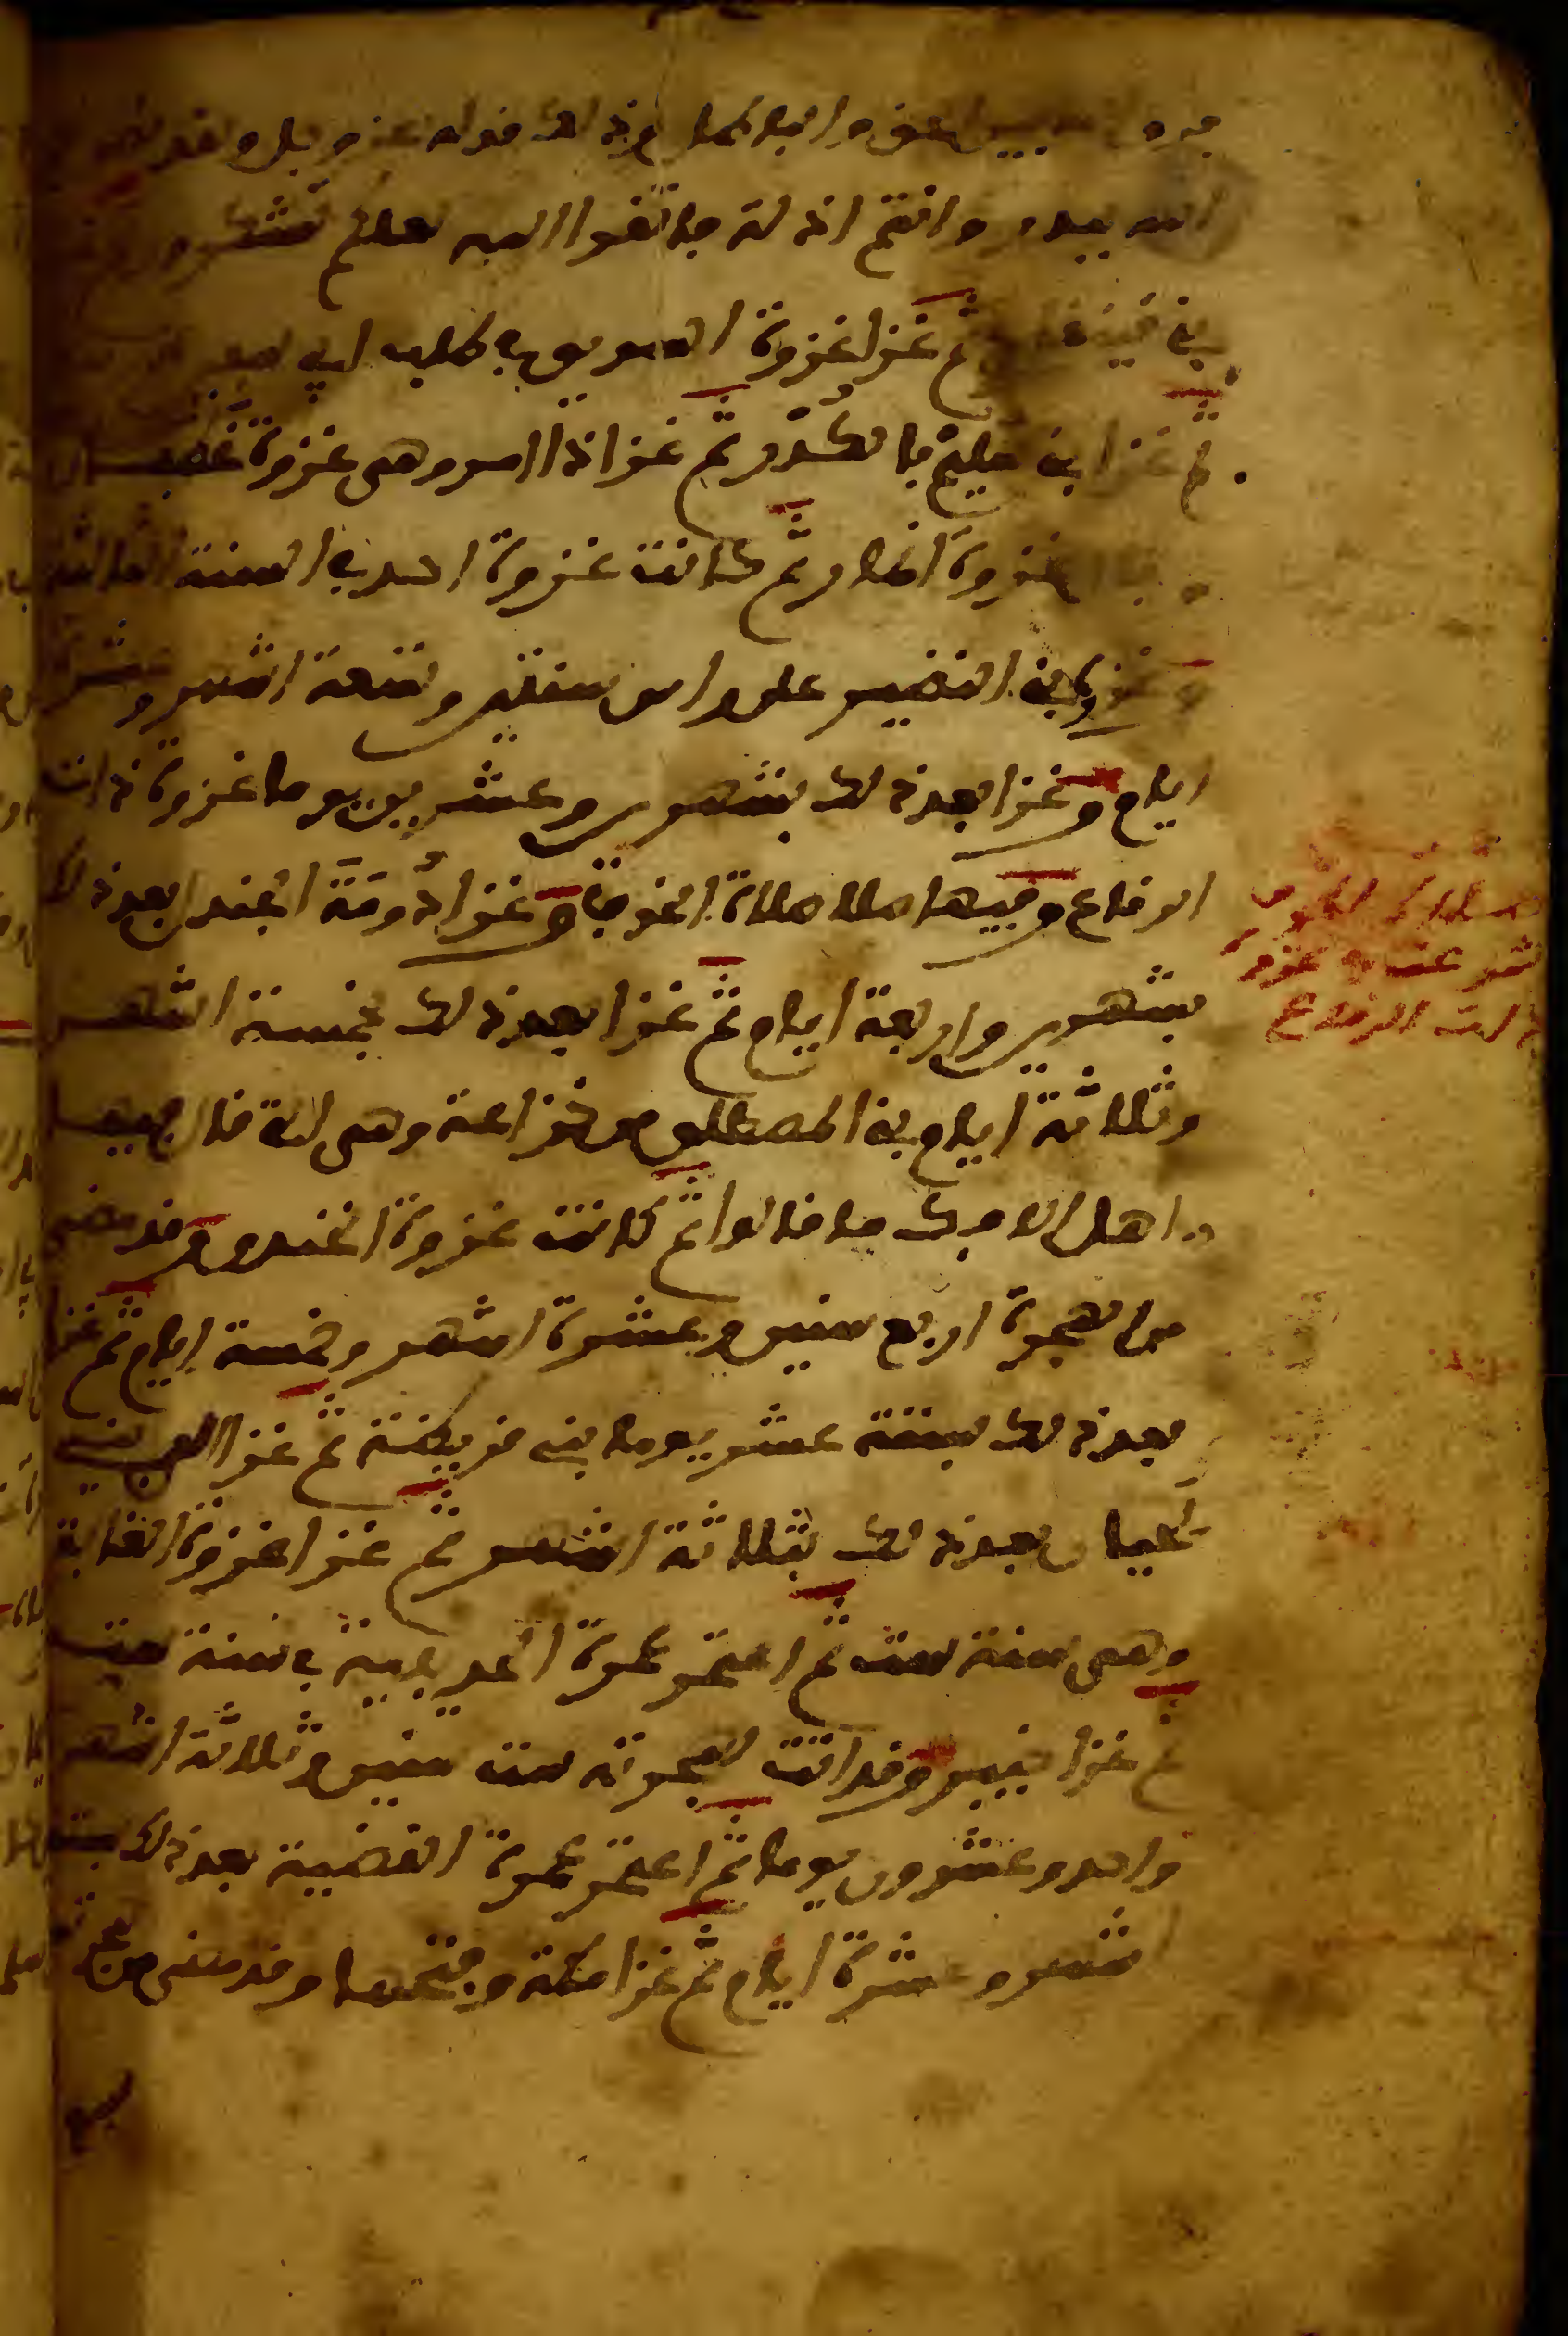 الحق والباطل وذلك قوله عز وجل ولقد نصركم
الله ببدر وانتم اذلة فاتقوا الله لعلكم تشكرون
بني قينقاع ثم غزا غزوة السويق في طلب ابي
ثم غزا بني سليم بالكُدْر ثم غزا ذا امر وهي غزوة غطفان
غزوة انمار ثم كانت غزوة احد في السنة الثالثة
وغزوة بني النضير على راس سنتين وتسعة اشهر وعشرة
ايام وغزا بعد ذلك بشهرين وعشرين يوما غزوة ذات
الرقاع وفيها صلا صلاة الخوف وغزا دُومَةَ الجندل بعد ذلك
بشهرين واربعة ايام ثم غزا بعد ذلك بخمسة اشهر
وثلاثة ايام بني المصطلق من خزاعة وهي التي قال فيها
اهل الافك ما قالوا ثم كانت غزوة الخندق وقد مضى
من الهجرة اربع سنين وعشرة اشهر وخمسة ايام ثم غزا
بعد ذلك بستة عشر يوما بني قريظة ثم غزا الى بني
لَحيان بعد ذلك بثلاثة اشهر ثم غزا غزوة الغابة
وهي سنة ست ثم اعتمر عمرة الحديبية في سنة ست
ثم غزا خيبر وقد اتت لهجرته ست سنين وثلاثة اشهر
واحد وعشرون يوما ثم اعتمر عمرة القضية بعد ذلك بستة
اشهر وعشرة ايام ثم غزا مكة وفتحها وقد مضى من هجرته
صلاة الخوف
غزوة
ذات الرقاع
سبع